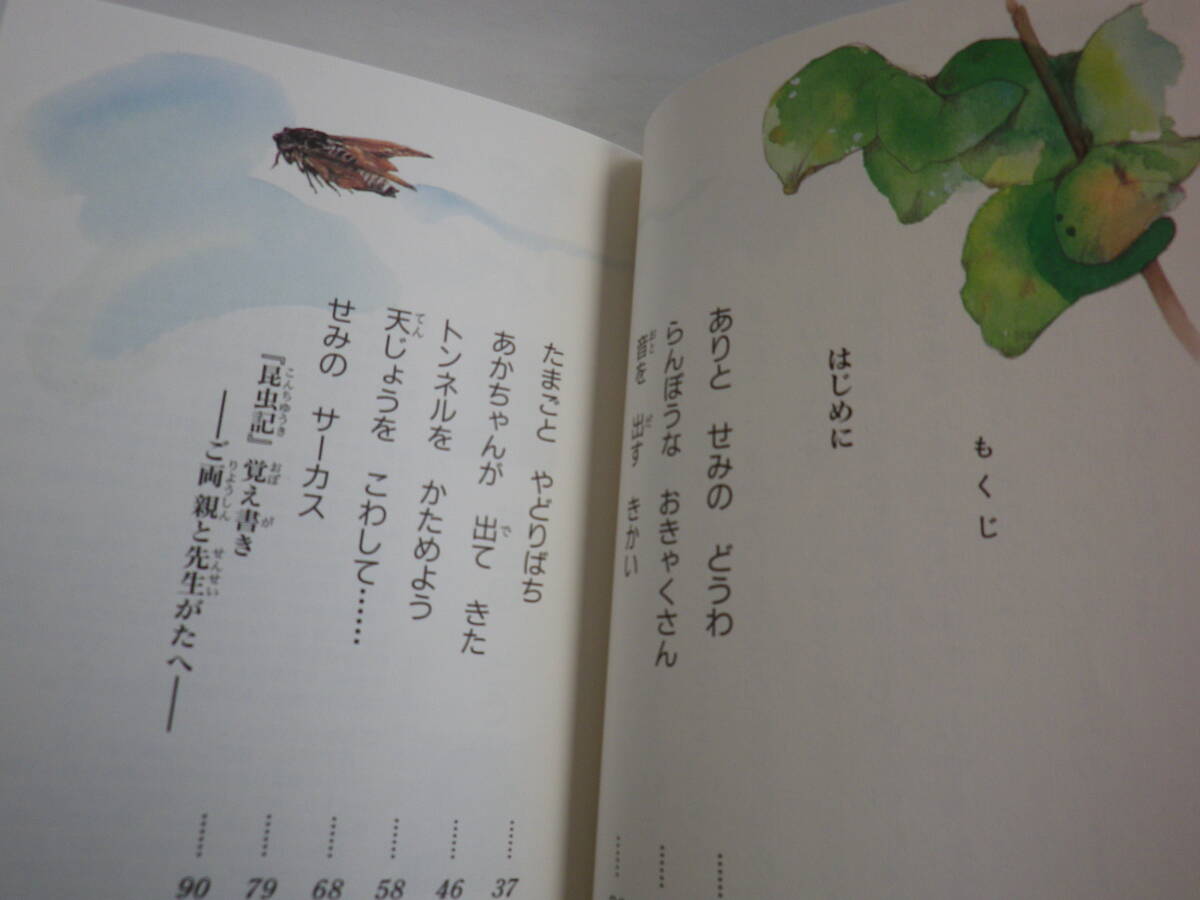 もくじ
はじめに
ありと せみの どうわ……
らんぼうな おきゃくさん……
音を 出す きかい……
おと だ
たまごと やどりばち……37
あかちゃんが 出て きた……46
で
トンネルを かためよう……58
天じょうを こわして…………68
てん
せみの サーカス……79
『昆虫記』覚え書き
こんちゅうき おぼ が
――ご両親と先生がたへ――……90
りょうしん せんせい